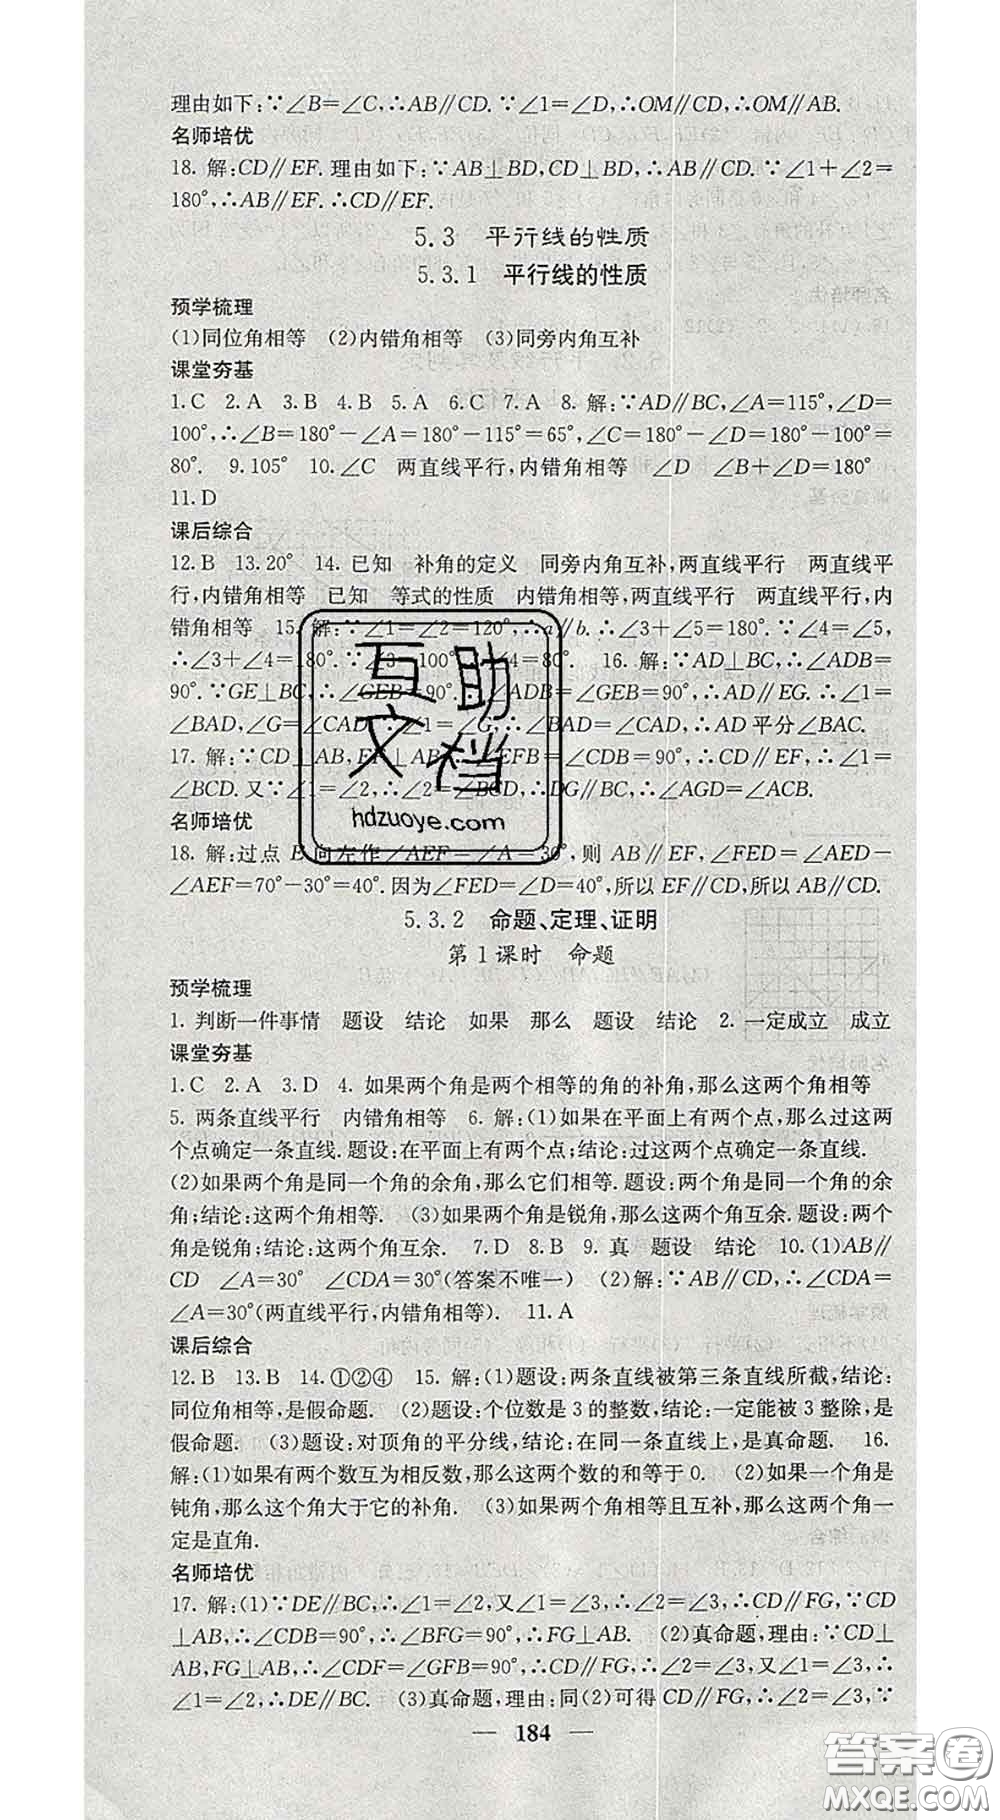 理由如下:∵∠B=∠C,∴AB∥CD.∵∠1=∠D,∴OM∥CD,∴OM∥AB.
名师培优
18. 解:CD∥EF.理由如下:∵AB⊥BD,CD⊥BD,∴AB∥CD.∵∠1+∠2=
180°,∴AB∥EF.∴CD∥EF.
5.3 平行线的性质
5.3.1 平行线的性质
预学梳理
(1)同位角相等 (2)内错角相等 (3)同旁内角互补
课堂夯基
1.C 2.A 3.B 4.B 5.A 6.C 7.A 8. 解:∵AD∥BC,∠A=115°,∠D=
100°,∴∠B=180°-∠A=180°-115°=65°,∠C=180°-∠D=180°-100°=
80°. 9.105° 10.∠C 两直线平行,内错角相等 ∠D ∠B+∠D=180°
11.D
课后综合
12.B 13.20° 14. 已知 补角的定义 同旁内角互补,两直线平行 两直线平
行,内错角相等 已知 等式的性质 内错角相等,两直线平行 两直线平行,内
错角相等 15. 解:∵∠1=∠2=120°,∴a∥b.∴∠3+∠5=180°.∵∠4=∠5,
∴∠3+∠4=180°.∵∠3=100°,∴∠4=80°. 16. 解:∵AD⊥BC,∴∠ADB=
90°.∵GE⊥BC,∴∠GEB=90°.∴∠ADB=∠GEB=90°,∴AD∥EG.∴∠1=
∠BAD,∠G=∠CAD.∵∠1=∠G,∴∠BAD=∠CAD,∴AD平分∠BAC.
17. 解:∵CD⊥AB,EF⊥AB,∴∠EFB=∠CDB=90°,∴CD∥EF,∴∠1=
∠BCD.又∵∠1=∠2,∴∠2=∠BCD,∴DG∥BC,∴∠AGD=∠ACB.
名师培优
18. 解:过点 E 向左作∠AEF=∠A=30°,则 AB∥EF,∠FED=∠AED-
∠AEF=70°-30°=40°.因为∠FED=∠D=40°,所以EF∥CD,所以AB∥CD.
5.3.2 命题、定理、证明
第1课时 命题
预学梳理
1. 判断一件事情 题设 结论 如果 那么 题设 结论 2. 一定成立 成立
课堂夯基
1.C 2.A 3.D 4. 如果两个角是两个相等的角的补角,那么这两个角相等
5. 两条直线平行 内错角相等 6. 解:(1)如果在平面上有两个点,那么过这两
个点确定一条直线.题设:在平面上有两个点;结论:过这两个点确定一条直线.
(2)如果两个角是同一个角的余角,那么它们相等.题设:两个角是同一个角的余
角;结论:这两个角相等. (3)如果两个角是锐角,那么这两个角互余.题设:两个
角是锐角;结论:这两个角互余. 7.D 8.B 9. 真 题设 结论 10.(1)AB∥
CD ∠A=30° ∠CDA=30°(答案不唯一) (2)解:∵AB∥CD,∴∠CDA=
∠A=30°(两直线平行,内错角相等). 11.A
课后综合
12.B 13.B 14.①②④ 15. 解:(1)题设:两条直线被第三条直线所截,结论:
同位角相等,是假命题. (2)题设:个位数是3的整数,结论:一定能被3整除,是
假命题. (3)题设:对顶角的平分线,结论:在同一条直线上,是真命题. 16.
解:(1)如果有两个数互为相反数,那么这两个数的和等于0. (2)如果一个角是
钝角,那么这个角大于它的补角. (3)如果两个角相等且互补,那么这两个角一
定是直角.
名师培优
17. 解:(1)∵DE∥BC,∴∠1=∠2,又∠1=∠3,∴∠2=∠3,∴CD∥FG,∵CD
⊥AB,∴∠CDB=90°,∴∠BFG=90°,∴FG⊥AB. (2)真命题,理由:∵CD⊥
AB,FG⊥AB,∴∠CDF=∠GFB=90°,∴CD∥FG,∴∠2=∠3,又∠1=∠3,∴
∠1=∠2,∴DE∥BC. (3)真命题,理由:同(2)可得CD∥FG,∴∠2=∠3,∵
— 184 —
互助
文档
hdzuoye.com
答案圈
MXQE.COM